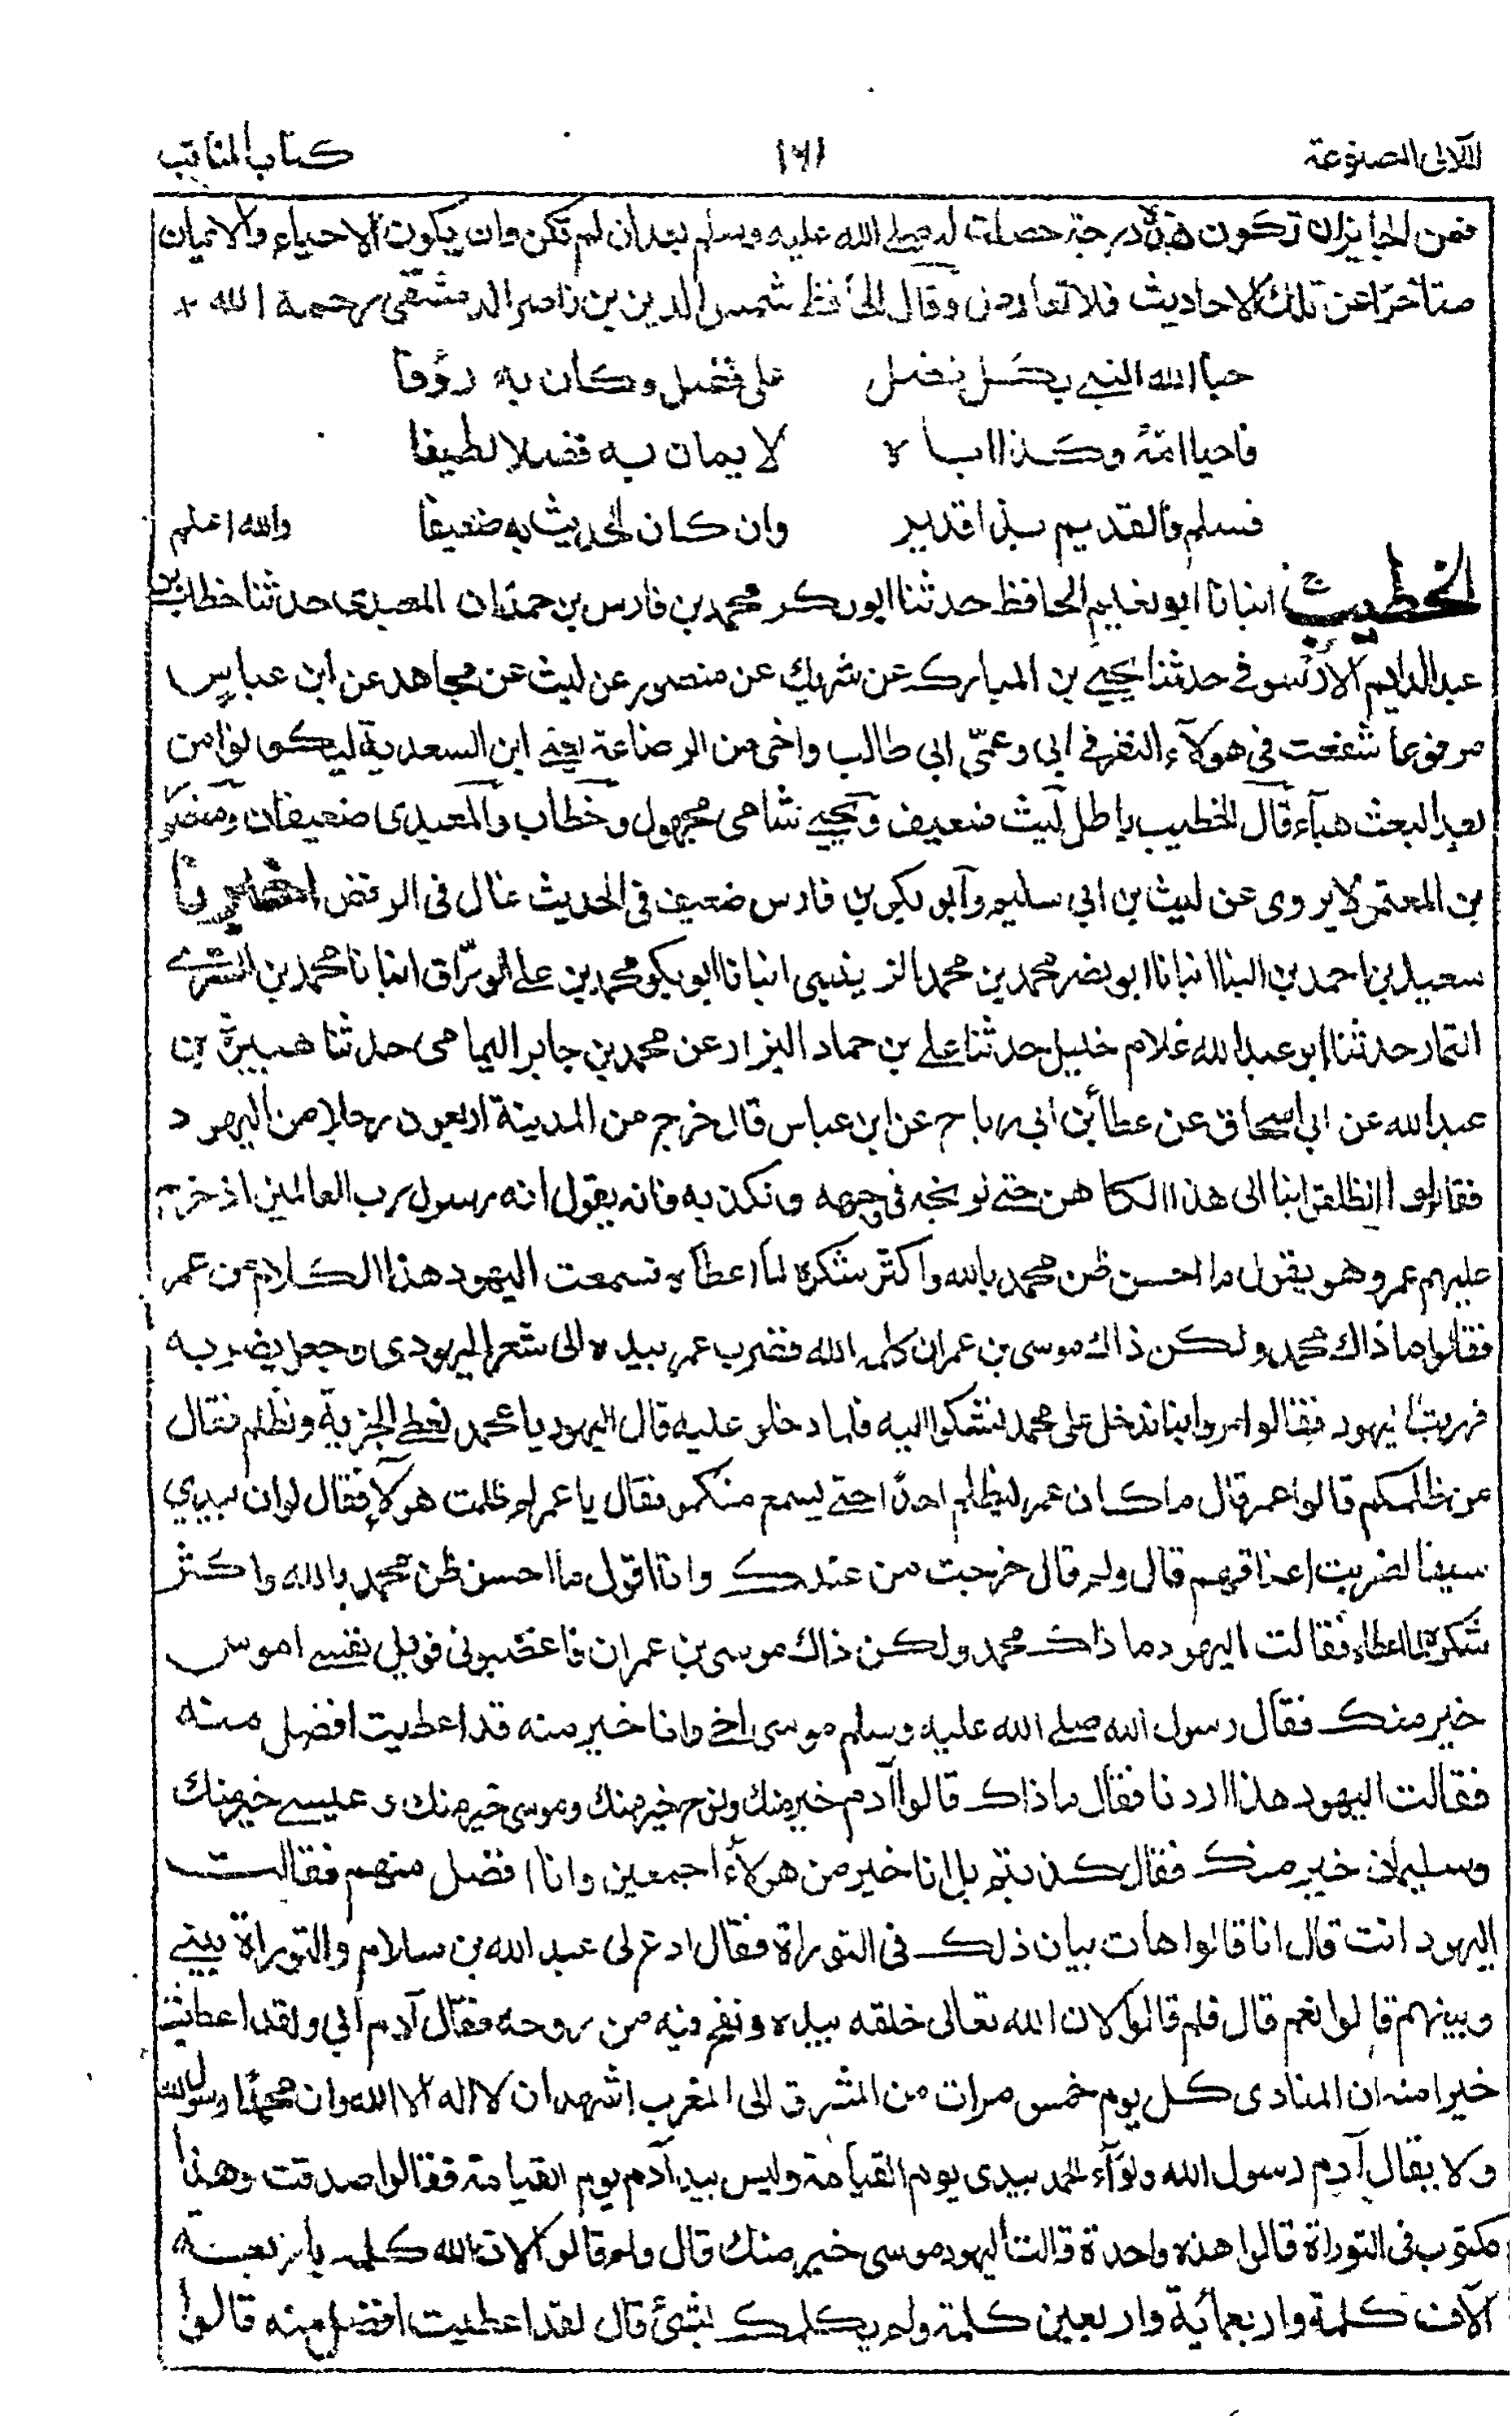 اللآلى المصنوعة
١٤١
كتاب المناقب
فمن الجايز ان تكون هذه درجة حصلت له صلى الله عليه وسلم بعد ان لم تكن وان يكون الاحياء والايمان
متأخرا عن تلك الاحاديث فلا تعارض وقال الحافظ شمس الدين بن ناصر الدمشقى رحمة الله
حبا الله النبي بكل فضل على فضل وكان به رؤفا
فاحيا امه وكذا اباه لايمان به فضلا لطيفا
فسلم فالقديم بذا قدير وان كان الحديث به ضعيفا والله اعلم
الخطيب انبانا ابو نعيم الحافظ حدثنا ابو بكر محمد بن فارس بن حمدان المعبدى حدثنا خطاب بن
عبد الدايم الارسوفى حدثنا يحيى بن المبارك عن شريك عن منصور عن ليث عن مجاهد عن ابن عباس
مرفوعا شفعت فى هولاء النفر فى ابى وعمى ابى طالب واخى من الرضاعة يعنى ابن السعدية ليكونوا من
بعد البعث هباء قال الخطيب باطل ليث ضعيف ويحيى شامى مجهول وخطاب والمعبدى ضعيفان ومنصور
بن المعتمر لا يروى عن ليث بن ابى سليم وابو بكر بن فارس ضعيف فى الحديث غال فى الرفض اخبرنا
سعيد بن احمد بن البنا انبانا ابو نصر محمد بن محمد الزينبى انبانا ابو بكر محمد بن على الوراق انبانا محمد بن السرى
التمار حدثنا ابو عبد الله غلام خليل حدثنا على بن حماد البزار عن محمد بن جابر اليمامى حدثنا هبيرة بن
عبد الله عن ابى اسحاق عن عطا بن ابى رباح عن ابن عباس قال خرج من المدينة اربعون رجلا من اليهود
فقالوا انطلقوا بنا الى هذا الكاهن حتى نوبخه فى وجهه ونكذبه فانه يقول انه رسول رب العالمين اذ خرج
عليهم عمر وهو يقول ما احسن ظن محمد بالله واكثر شكره لما اعطاه فسمعت اليهود هذا الكلام من عمر
فقالوا ما ذاك محمد ولكن ذاك موسى بن عمران كلمه الله فضرب عمر بيده الى شعر اليهودى وجعل يضربه
فهربت اليهود فقالوا مروا بنا ندخل على محمد نشكوا اليه فلما دخلو عليه قال اليهود يا محمد نعطى الجزية ونظلم فقال
من ظلمكم قالوا عمر قال ما كان عمر ليظلم احدا حتى يسمع منكرا فقال يا عمر لم ظلمت هولاء فقال لو ان بيدي
سيفا لضربت اعناقهم قال ولم قال خرجت من عندك وانا اقول ما احسن ظن محمد بالله واكثر
شكره لما اعطاه فقالت اليهود ما ذاك محمد ولكن ذاك موسى بن عمران فاغضبونى فويل نفسى اموسى
خير منك فقال رسول الله صلى الله عليه وسلم موسى اخى وانا خير منه قد اعطيت افضل منه
فقالت اليهود هذا اردنا فقال ما ذاك قالوا آدم خير منك ونوح خير منك وموسى خير منك و عيسى خير منك
وسليمان خير منك فقال كذبتم بل انا خير من هولاء اجمعين وانا افضل منهم فقالت
اليهود انت قال انا قالوا هات بيان ذلك فى التوراة فقال ادع لى عبد الله بن سلام والتوراة بينى
وبينهم قالوا نعم قال فلم قالوا لان الله تعالى خلقه بيده ونفخ فيه من روحه فقال آدم ابى ولقد اعطيت
خيرا منه ان المنادى كل يوم خمس مرات من المشرق الى المغرب اشهد ان لا اله الا الله وان محمدا رسول الله
ولا يقال آدم رسول الله ولواء الحمد بيدى يوم القيامة وليس بيد آدم يوم القيامة فقالوا صدقت وهذا
مكتوب فى التوراة قالوا هذه واحدة قالت اليهود موسى خير منك قال ولم قالوا لان الله كلمه باربعة
آلاف كلمة واربعمائة واربعين كلمة ولم يكلمك بشئ قال لقد اعطيت افضل منه قالوا